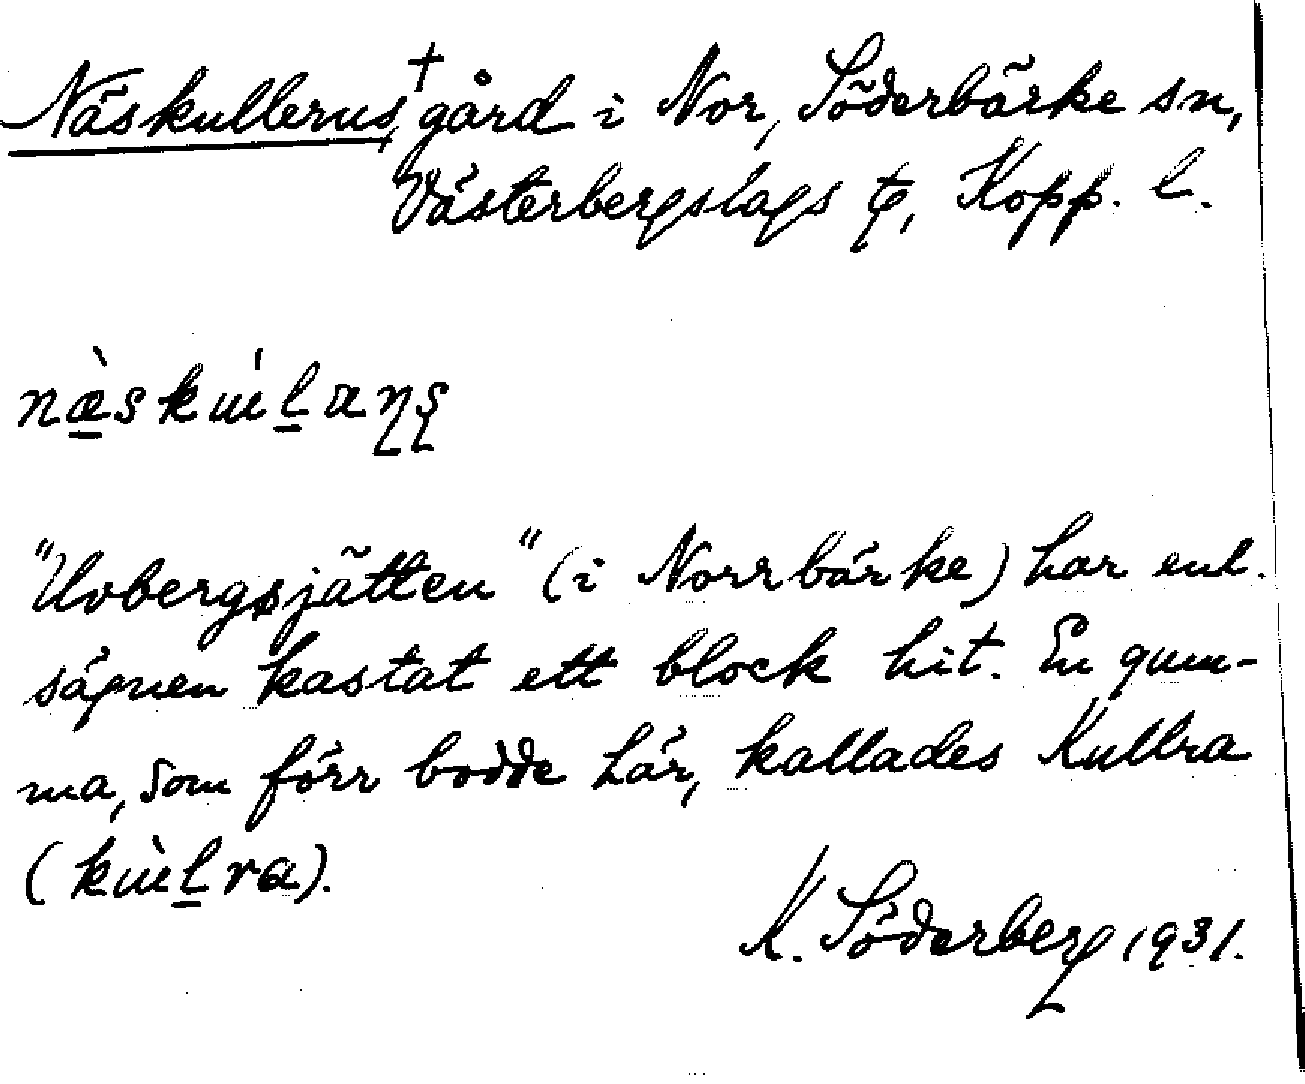 Näskullerus, † gård i Nor, Söderbärke sn,
Västerbergslags tg, Kopp. l.
"Uvbergsjätten" (i Norrbärke) har enl.
sägnen kastat ett block hit. En gum-
ma, som förr bodde här, kallades Kullra
K. Söderberg 1931.